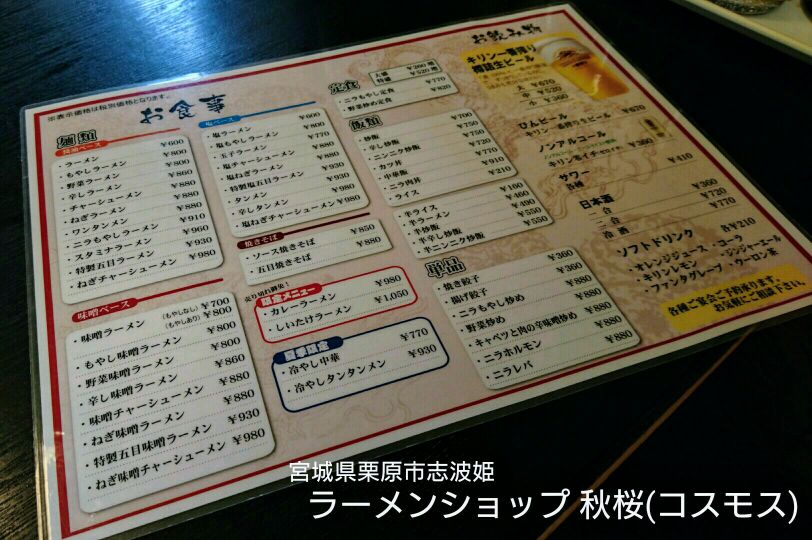 ※表示価格は税別価格となります。
お食事
麺類
醤油ベース
・ラーメン ¥600
・もやしラーメン ¥800
・野菜ラーメン ¥800
・辛しラーメン ¥800
・チャーシューメン ¥880
・ねぎラーメン ¥880
・ワンタンメン ¥880
・ニラもやしラーメン ¥910
・スタミナラーメン ¥960
・特製五目ラーメン ¥930
・ねぎチャーシューメン ¥980
味噌ベース
・味噌ラーメン (もやしなし) ¥700
(もやしあり) ¥800
・もやし味噌ラーメン ¥800
・野菜味噌ラーメン ¥800
・辛し味噌ラーメン ¥860
・味噌チャーシューメン ¥880
・ねぎ味噌ラーメン ¥880
・特製五目味噌ラーメン ¥930
・ねぎ味噌チャーシューメン ¥980
塩ベース
・塩ラーメン ¥600
・塩もやしラーメン ¥800
・玉子ラーメン ¥770
・塩チャーシューメン ¥880
・塩ねぎラーメン ¥880
・特製塩五目ラーメン ¥930
・タンメン ¥880
・辛しタンメン ¥930
・塩ねぎチャーシューメン ¥980
焼きそば
・ソース焼きそば ¥850
・五目焼きそば ¥880
売り切れ御免!
限定メニュー
・カレーラーメン ¥980
・しいたけラーメン ¥1,050
夏季限定
・冷やし中華 ¥770
・冷やしタンタンメン ¥930
定食
大盛 ¥260増
特盛 ¥520増
・ニラもやし定食 ¥770
・野菜炒め定食 ¥820
飯類
・炒飯 ¥700
・辛し炒飯 ¥750
・ニンニク炒飯 ¥750
・カツ丼 ¥720
・中華飯 ¥770
・ニラ肉丼 ¥910
・ライス ¥210
・半ライス ¥160
・半ラーメン ¥460
・半炒飯 ¥490
・半辛し炒飯 ¥550
・半ニンニク炒飯 ¥550
単品
・焼き餃子 ¥360
・揚げ餃子 ¥360
・ニラもやし炒め
・野菜炒め
・キャベツと肉の辛味噌炒め
・ニラホルモン ¥880
・ニラレバ ¥880
お飲み物
キリン一番搾り
樽詰生ビール
大 ¥670
中 ¥520
小 ¥360
びんビール
キリン一番搾り生ビール ¥670
ノンアルコール
キリン零イチ(ゼロイチ) ¥360
サワー
各種 ¥410
日本酒
一合 ¥360
二合 ¥720
冷酒 ¥770
ソフトドリンク 各¥210
・オレンジジュース・コーラ
・キリンレモン ・ジンジャーエール
・ファンタグレープ・ウーロン茶
各種ご宴会ご予約承ります。
お気軽にご相談下さい。
宮城県栗原市志波姫
ラーメンショップ 秋桜(コスモス)